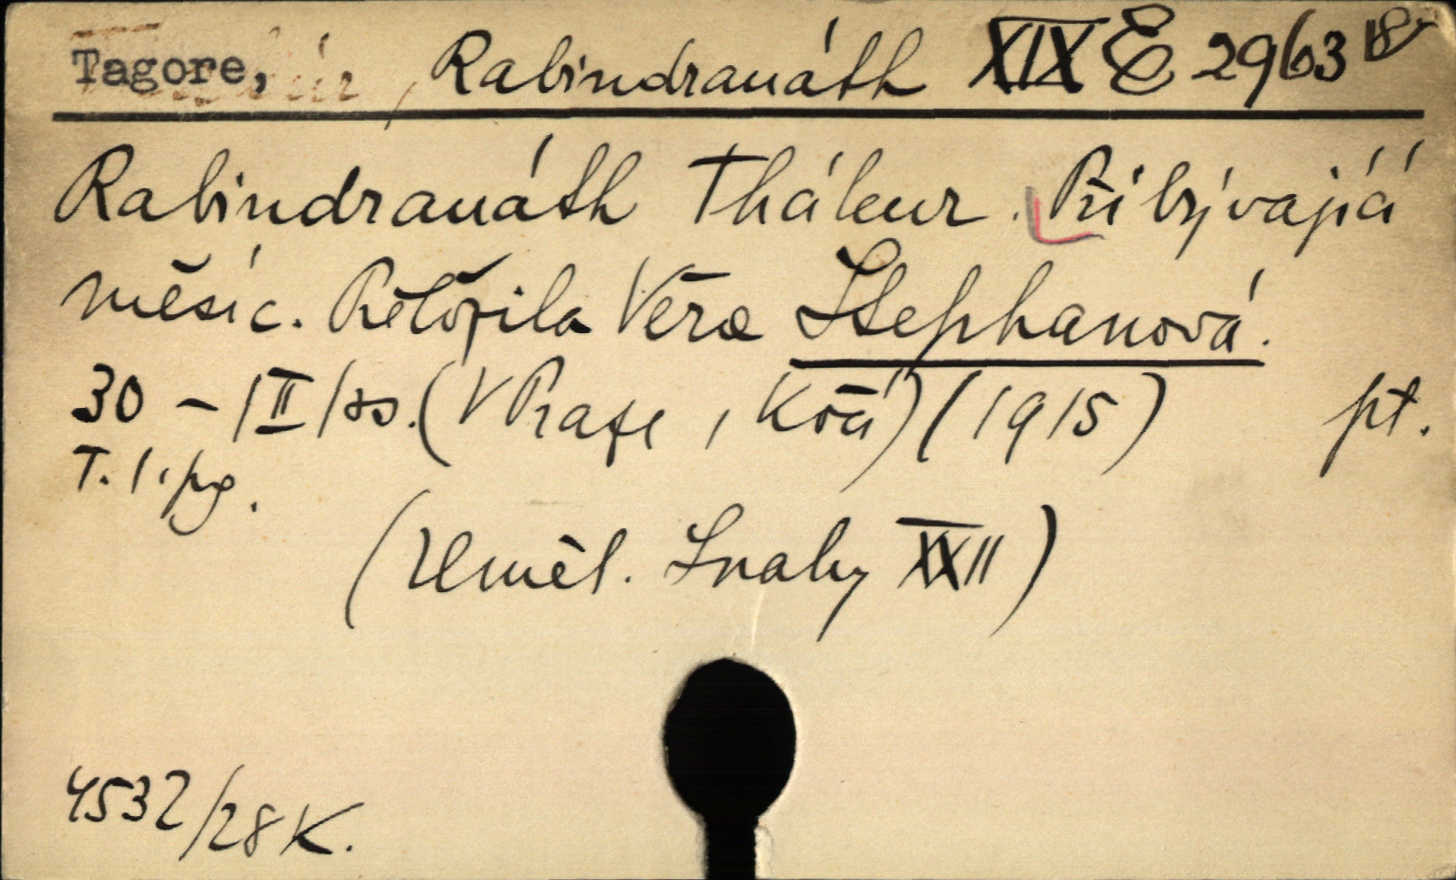 Tagore, Rabindranáth XIX E 2963
Rabindranáth Thákur. Přibývající
měsíc. Přeložila Věra Stephanová.
30 – |II| ss. (V Praze, Kočí) (1915) pt.
T. l. pg.
(Uměl. Snahy XXII)
4532/28 K.